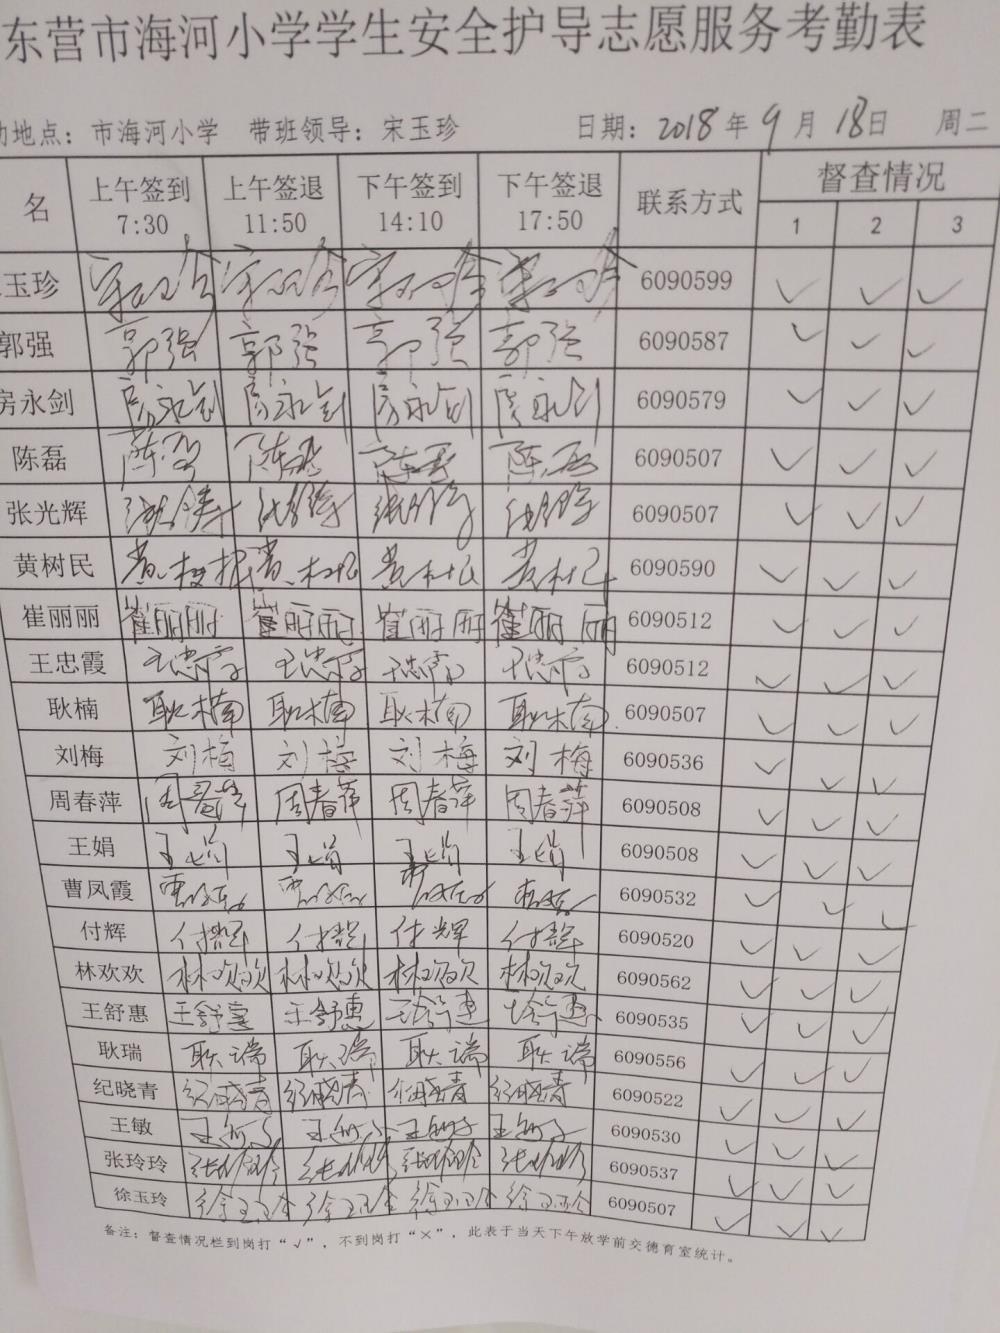 东营市海河小学学生安全护导志愿服务考勤表
动地点：市海河小学 带班领导：宋玉珍 日期：2018年9月18日 周二
名 上午签到 7:30 上午签退 11:50 下午签到 14:10 下午签退 17:50 联系方式 督查情况 1 2 3
玉珍 6090599 ✓ ✓ ✓
郭强 郭强 郭强 郭强 郭强 6090587 ✓ ✓ ✓
房永剑 房永剑 房永剑 房永剑 房永剑 6090579 ✓ ✓ ✓
陈磊 陈磊 陈磊 陈磊 陈磊 6090507 ✓ ✓ ✓
张光辉 6090507 ✓ ✓ ✓
黄树民 6090590 ✓ ✓ ✓
崔丽丽 崔丽丽 崔丽丽 崔丽丽 崔丽丽 6090512 ✓ ✓ ✓
王忠霞 王忠霞 王忠霞 王忠霞 王忠霞 6090512 ✓ ✓ ✓
耿楠 耿楠 耿楠 耿楠 耿楠 6090507 ✓ ✓ ✓
刘梅 刘梅 刘梅 刘梅 刘梅 6090536 ✓ ✓ ✓
周春萍 周春萍 周春萍 周春萍 周春萍 6090508 ✓ ✓ ✓
王娟 王娟 王娟 王娟 王娟 6090508 ✓ ✓ ✓
曹凤霞 6090532 ✓ ✓ ✓
付辉 付辉 付辉 付辉 付辉 6090520 ✓ ✓ ✓
林欢欢 林欢欢 林欢欢 林欢欢 林欢欢 6090562 ✓ ✓ ✓
王舒惠 王舒惠 王舒惠 王舒惠 王舒惠 6090535 ✓ ✓ ✓
耿瑞 耿瑞 耿瑞 耿瑞 耿瑞 6090556 ✓ ✓ ✓
纪晓青 纪晓青 纪晓青 纪晓青 纪晓青 6090522 ✓ ✓ ✓
王敏 王敏 王敏 王敏 王敏 6090530 ✓ ✓ ✓
张玲玲 张玲玲 张玲玲 张玲玲 张玲玲 6090537 ✓ ✓ ✓
徐玉玲 徐玉玲 徐玉玲 徐玉玲 徐玉玲 6090507 ✓ ✓ ✓
备注：督查情况栏到岗打“√”，不到岗打“×”，此表于当天下午放学前交德育室统计。